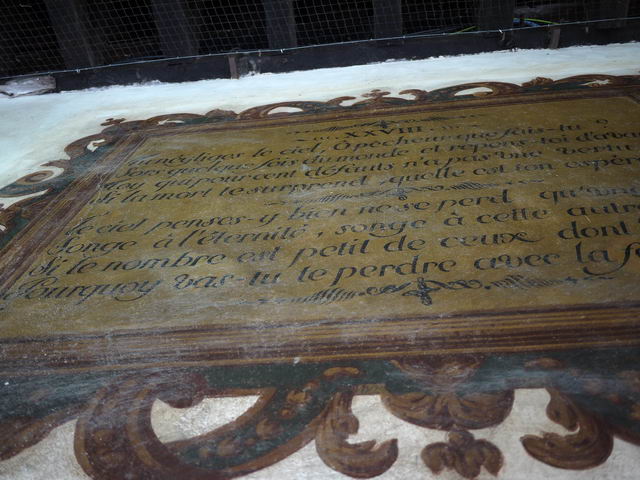 XXVIII
Tu négliges le ciel, ô pecheur que fais-tu?
Sors quelque fois du monde et répons-toi
Toy qui pour cent défauts n'a pas une vertu
Si la mort te surprend, quelle est ton espér
Le ciel penses-y bien ne se perd qu'une
Songe à l'éternité, songe à cette autre
Si le nombre est petit de ceux dont
Pourquoy vas-tu te perdre avec la